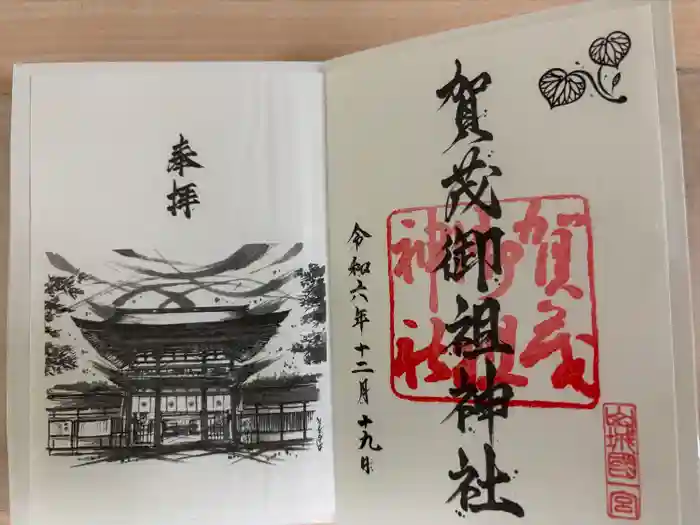 奉拝
賀茂御祖神社
令和六年十二月十九日
賀茂
御祖
神社
山城國一宮